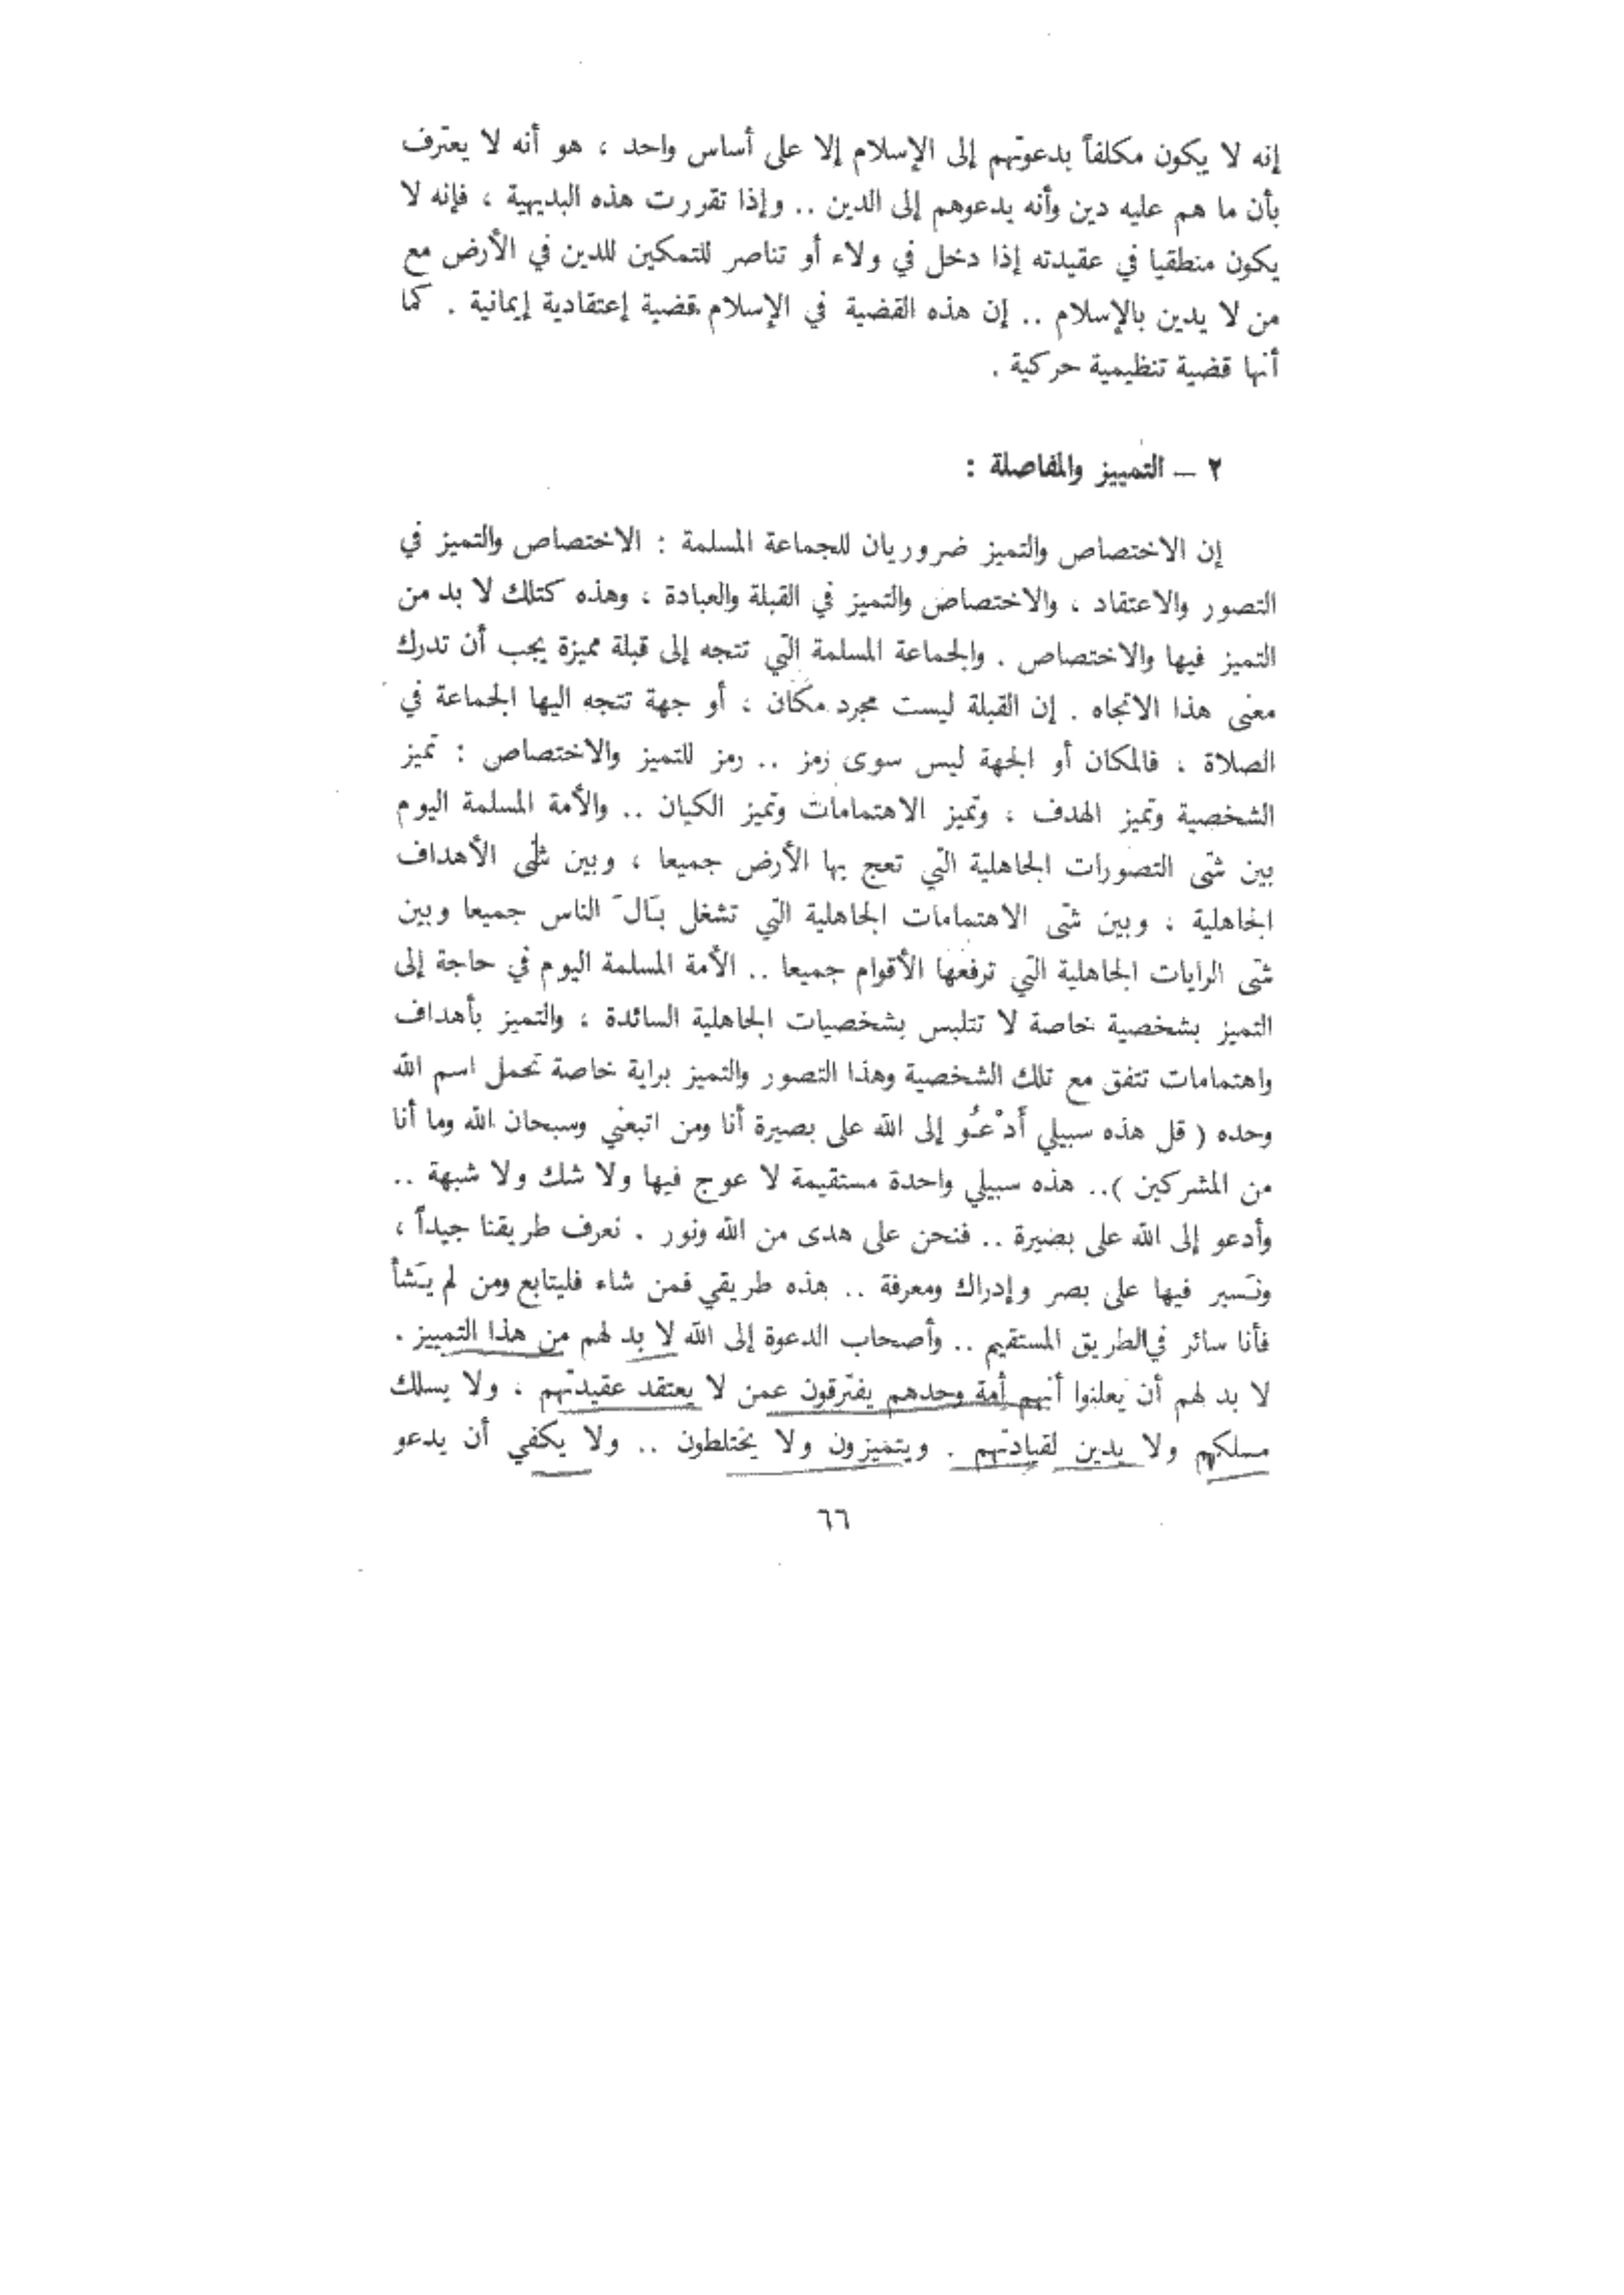 إنه لا يكون مكلفاً بدعوتهم إلى الإسلام إلا على أساس واحد ، هو أنه لا يعترف
بأن ما هم عليه دين وأنه يدعوهم إلى الدين .. وإذا تقررت هذه البديهية ، فإنه لا
يكون منطقيا في عقيدته إذا دخل في ولاء أو تناصر للتمكين للدين في الأرض مع
من لا يدين بالإسلام .. إن هذه القضية في الإسلام قضية إعتقادية إيمانية . كما
أنها قضية تنظيمية حركية .
٢ – التمييز والمفاصلة :
إن الاختصاص والتميز ضروريان للجماعة المسلمة : الاختصاص والتميز في
التصور والاعتقاد ، والاختصاص والتميز في القبلة والعبادة ، وهذه كتلك لا بد من
التميز فيها والاختصاص . والجماعة المسلمة التي تتجه إلى قبلة مميزة يجب أن تدرك
معنى هذا الاتجاه . إن القبلة ليست مجرد مكان ، أو جهة تتجه اليها الجماعة في
الصلاة ، فالمكان أو الجهة ليس سوى رمز .. رمز للتميز والاختصاص : تميز
الشخصية وتميز الهدف ، وتميز الاهتمامات وتميز الكيان .. والأمة المسلمة اليوم
بين شتى التصورات الجاهلية التي تعج بها الأرض جميعا ، وبين شتى الأهداف
الجاهلية ، وبين شتى الاهتمامات الجاهلية التي تشغل بَالَ الناس جميعا وبين
شتى الرايات الجاهلية التي ترفعها الأقوام جميعا .. الأمة المسلمة اليوم في حاجة إلى
التميز بشخصية خاصة لا تتلبس بشخصيات الجاهلية السائدة ، والتميز بأهداف
واهتمامات تتفق مع تلك الشخصية وهذا التصور والتميز براية خاصة تحمل اسم الله
وحده ( قل هذه سبيلي أَدْعُو إلى الله على بصيرة أنا ومن اتبعني وسبحان الله وما أنا
من المشركين ).. هذه سبيلي واحدة مستقيمة لا عوج فيها ولا شك ولا شبهة ..
وأدعو إلى الله على بصيرة .. فنحن على هدى من الله ونور . نعرف طريقنا جيداً ،
ونَسير فيها على بصر وإدراك ومعرفة .. هذه طريقي فمن شاء فليتابع ومن لم يَشأ
فأنا سائر في الطريق المستقيم .. وأصحاب الدعوة إلى الله لا بد لهم من هذا التمييز .
لا بد لهم أن يعلنوا أنهم أمة وحدهم يفترقون عمن لا يعتقد عقيدتهم ، ولا يسلك
مسلكهم ولا يدين لقيادتهم . ويتميزون ولا يختلطون .. ولا يكفي أن يدعو
٦٦